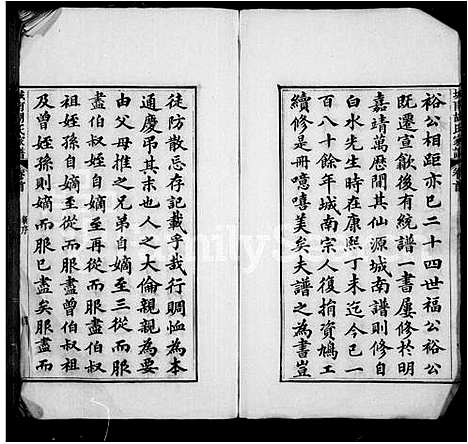 城南胡氏家譜 卷首
裕公相距亦已二十四世福公裕公
既遷宣歙後有統譜一書屢修於明
嘉靖萬曆間其仙源城南譜則修自
白水先生時在康熙丁未迄今已一
百八十餘年城南宗人復捐資鳩工
續修是冊噫嘻美矣夫譜之為書豈
徒防散忘存記載乎哉行賙恤為本
通慶弔其末也人之大倫親親為要
由父母推之兄弟自嫡至三從而服
盡伯叔父自嫡至再從而服盡伯叔
祖姪孫自嫡至從而服盡曾伯叔祖
及曾姪孫則嫡而服已盡矣服盡而